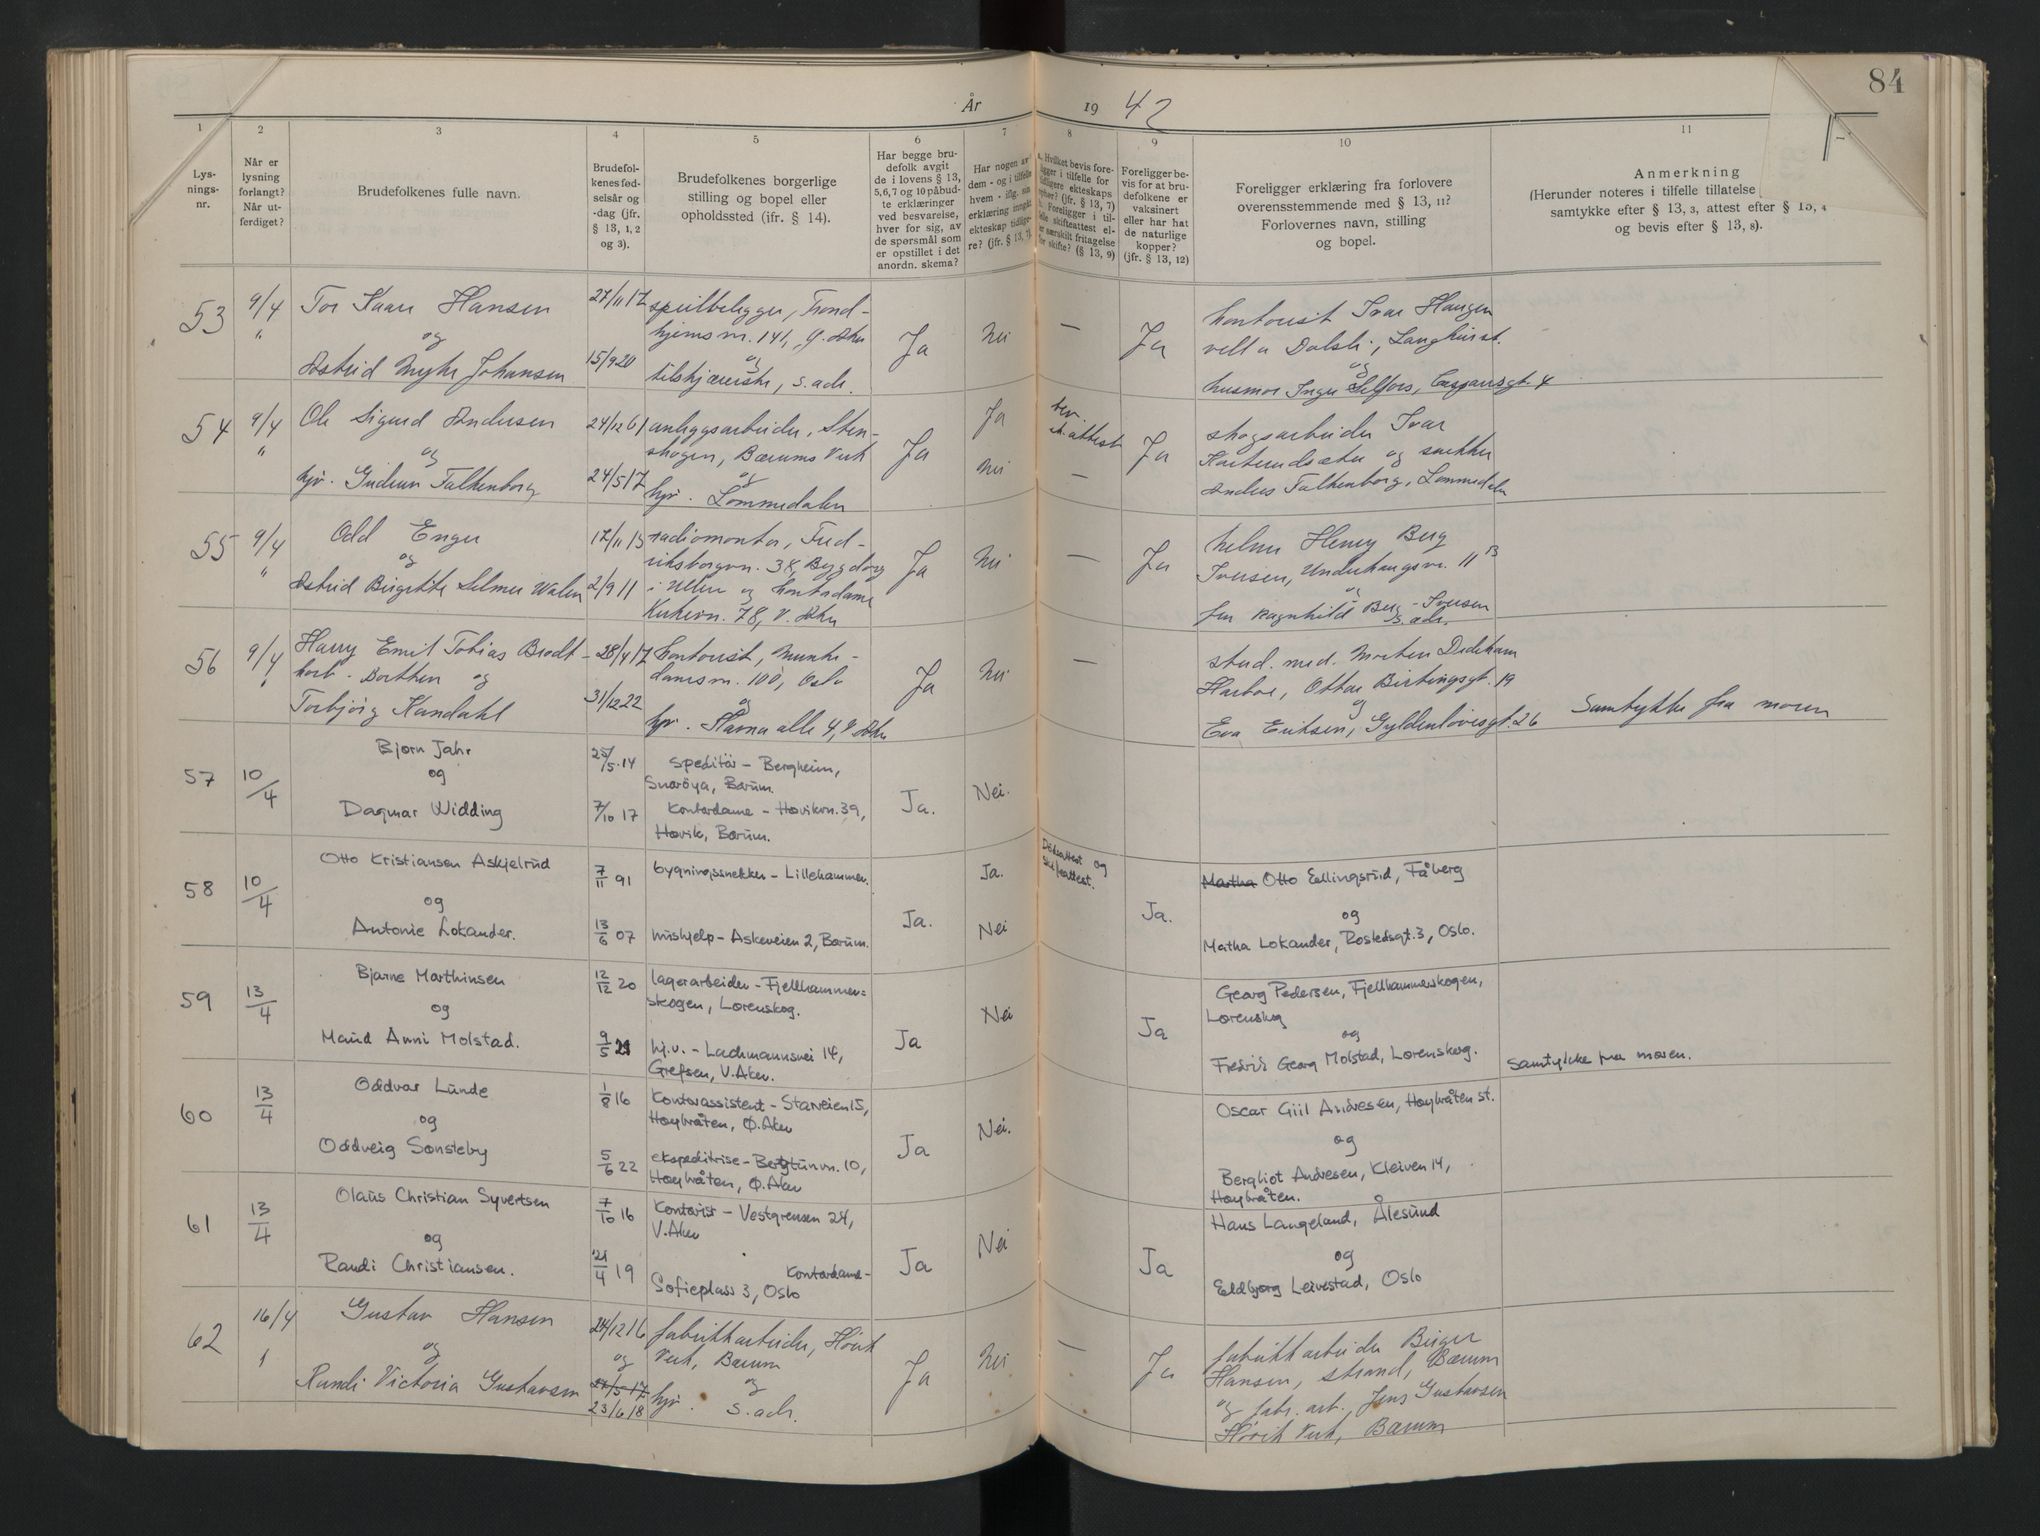 84
År 19 42
1 2 3 4 5 6 7 8 9 10 11
Lys-
nings-
nr.
Når er
lysning
forlangt?
Når ut-
ferdiget?
Brudefolkenes fulle navn.
Brudefol-
kenes fød-
selsår og
-dag (jfr.
§ 13, 1, 2
og 3).
Brudefolkenes borgerlige
stilling og bopel eller
opholdssted (jfr. § 14).
Har begge bru-
defolk avgit
de i lovens § 13,
5,6,7 og 10 påbud-
te erklæringer
ved besvarelse,
hver for sig, av
de spørsmål som
er opstillet i det
anordn. skema?
Har nogen av
dem - og i tilfelle
hvem - iflg. sin
erklæring inngåt
ekteskap tidlige-
re? (jfr. § 13, 7).
a. Hvilket bevis fore-
ligger i tilfelle for
tidligere ekteskaps
ophør? (jfr. § 13, 7)
b. Foreligger i til-
felle skifteattest el-
er særskilt fritagelse
for skifte? (§ 13, 9)
Foreligger be-
vis for at bru-
defolkene er
vaksinert
eller har hat
de naturlige
kopper?
(jfr. § 13, 12)
Foreligger erklæring fra forlovere
overensstemmende med § 13, 11?
Forlovernes navn, stilling
og bopel.
Anmerkning
(Herunder noteres i tilfelle tillatelse
samtykke efter § 13, 3, attest efter § 13, 4
og bevis efter § 13, 8).
53
9/4
"
Tor Kaare Hansen
og
Astrid Myhre Johansen
27/11 17
15/9 20
speilbelegger, Trond-
hjemsvn. 141, Ø. Aker
og
tilskjærerske, s. adr.
Ja
Nei
—
Ja
kontorist Ivar Haugen
villa Dalsli, Langhusst.
og
husmor Inger Selfors, Caspersgt. 4
54
9/4
"
Ole Sigurd Andersen
og
hjv. Gudrun Falkenborg
24/12 61
24/5 17
anleggsarbeider, Sten-
skogen, Bærums Verk
og
hjv. Lommedalen
Ja
Ja
Nei
bev.
sk. attest
—
Ja
skogsarbeider Ivar
Karterudsæter og snekker
Anders Falkenborg, Lommedalen
55
9/4
"
Odd Enger
og
Astrid Birgitte Selmer Walen
17/11 13
2/9 11
radiomontør, Fred-
riksborgvn. 38, Bygdøy
i Ullern og kontordame
Kirkevn. 78, V. Aker
Ja
Nei
—
Ja
Helmer Henry Berg
Iversen, Underhaugsvn. 11 B
og
fru Ragnhild Berg-Iversen
s. adr.
56
9/4
"
Harry Emil Tobias Brodt-
korb-Botthen og
Torbjörg Kandahl
28/4 17
31/12 22
kontorist, Munke-
damsvn. 100, Oslo
og
hjv. Harna alle 4, V. Aker
Ja
Nei
—
stud. med. Morten Dedekam
Harboe, Ottar Birtingsgt. 19
og
Eva Eriksen, Gyldenløvesgt. 26
Samtykke fra moren
57
10/4
Bjørn Jahr
og
Dagmar Widding
25/5 14
7/10 17
speditör – Bergheim,
Snaröya, Bærum.
Kontordame – Høvikvn. 39,
Høvik, Bærum.
Ja.
Nei.
58
10/4
Otto Kristiansen Askjelrud
og
Antonie Lokander.
7/11 91
13/6 07
bygningssnekker – Lillehammer.
hushjelp – Askeveien 2, Bærum.
Ja.
Ja.
Nei
Dödsattest og
skifteattest.
Ja.
Martha Otto Eellingsrud, Fåberg
og
Matha Lokander, Rostedsgt. 3, Oslo.
59
13/4
Bjarne Marthinsen
og
Maud Anni Molstad.
12/12 20
9/5 21
lagerarbeider – Fjellhammer=
skogen, Lørenskog.
hj.v. – Lachmannsvei 14,
Grefsen, V. Aker.
Ja
Nei
Ja
Georg Pedersen, Fjellhammerskogen,
Lørenskog
og
Fredrik Georg Molstad, Lørenskog.
Samtykke fra moren.
60
13/4
Oddvar Lunde
og
Oddveig Sønsteby
1/8 16
5/6 22
Kontorassistent – Starveien 15,
Høybråten, Ø. Aker
ekspeditrise – Bergtunvn. 10,
Høybråten, Ø. Aker
Ja
Nei.
Oscar Giil Andresen, Høybråten st.
og
Bergliot Andresen, Kleiven 14,
Høybråten.
61
13/4
Olaus Christian Syvertsen
og
Randi Christiansen.
7/10 16
21/4 19
Kontorist – Vestgrensen 24,
V. Aker
Kontordame –
Sofieplass 3, Oslo
Ja
Nei
Ja
Hans Langeland, Ålesund
og
Eldbjørg Leivestad, Oslo
62
16/4
"
Gustav Hansen
og
Randi Victoria Gustavsen
24/12 16
og
27/5 17
23/6 18
fabrikkarbeider, Hövik
Verk, Bærum
og
hjv. s. adr.
Ja
Nei
—
Ja
fabrikkarbeider Birger
Hansen, Strand, Bærum
og fabr. arb. Jens Gustavsen
Hövik Verk, Bærum